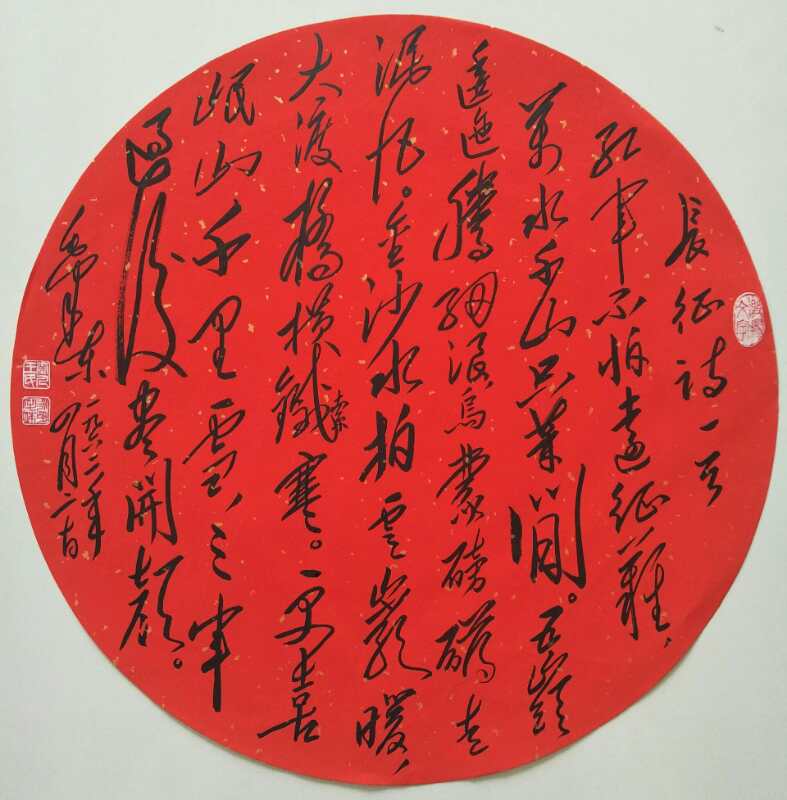 長征詩一首
紅軍不怕遠征難,
萬水千山只等閒。五嶺
逶迤騰細浪烏蒙磅礴走
泥丸。金沙水拍雲崖暖,
大渡橋橫鐵索寒。更喜
岷山千里雪,三軍
過後盡開顏。
毛澤東
一九六二年
四月二十日